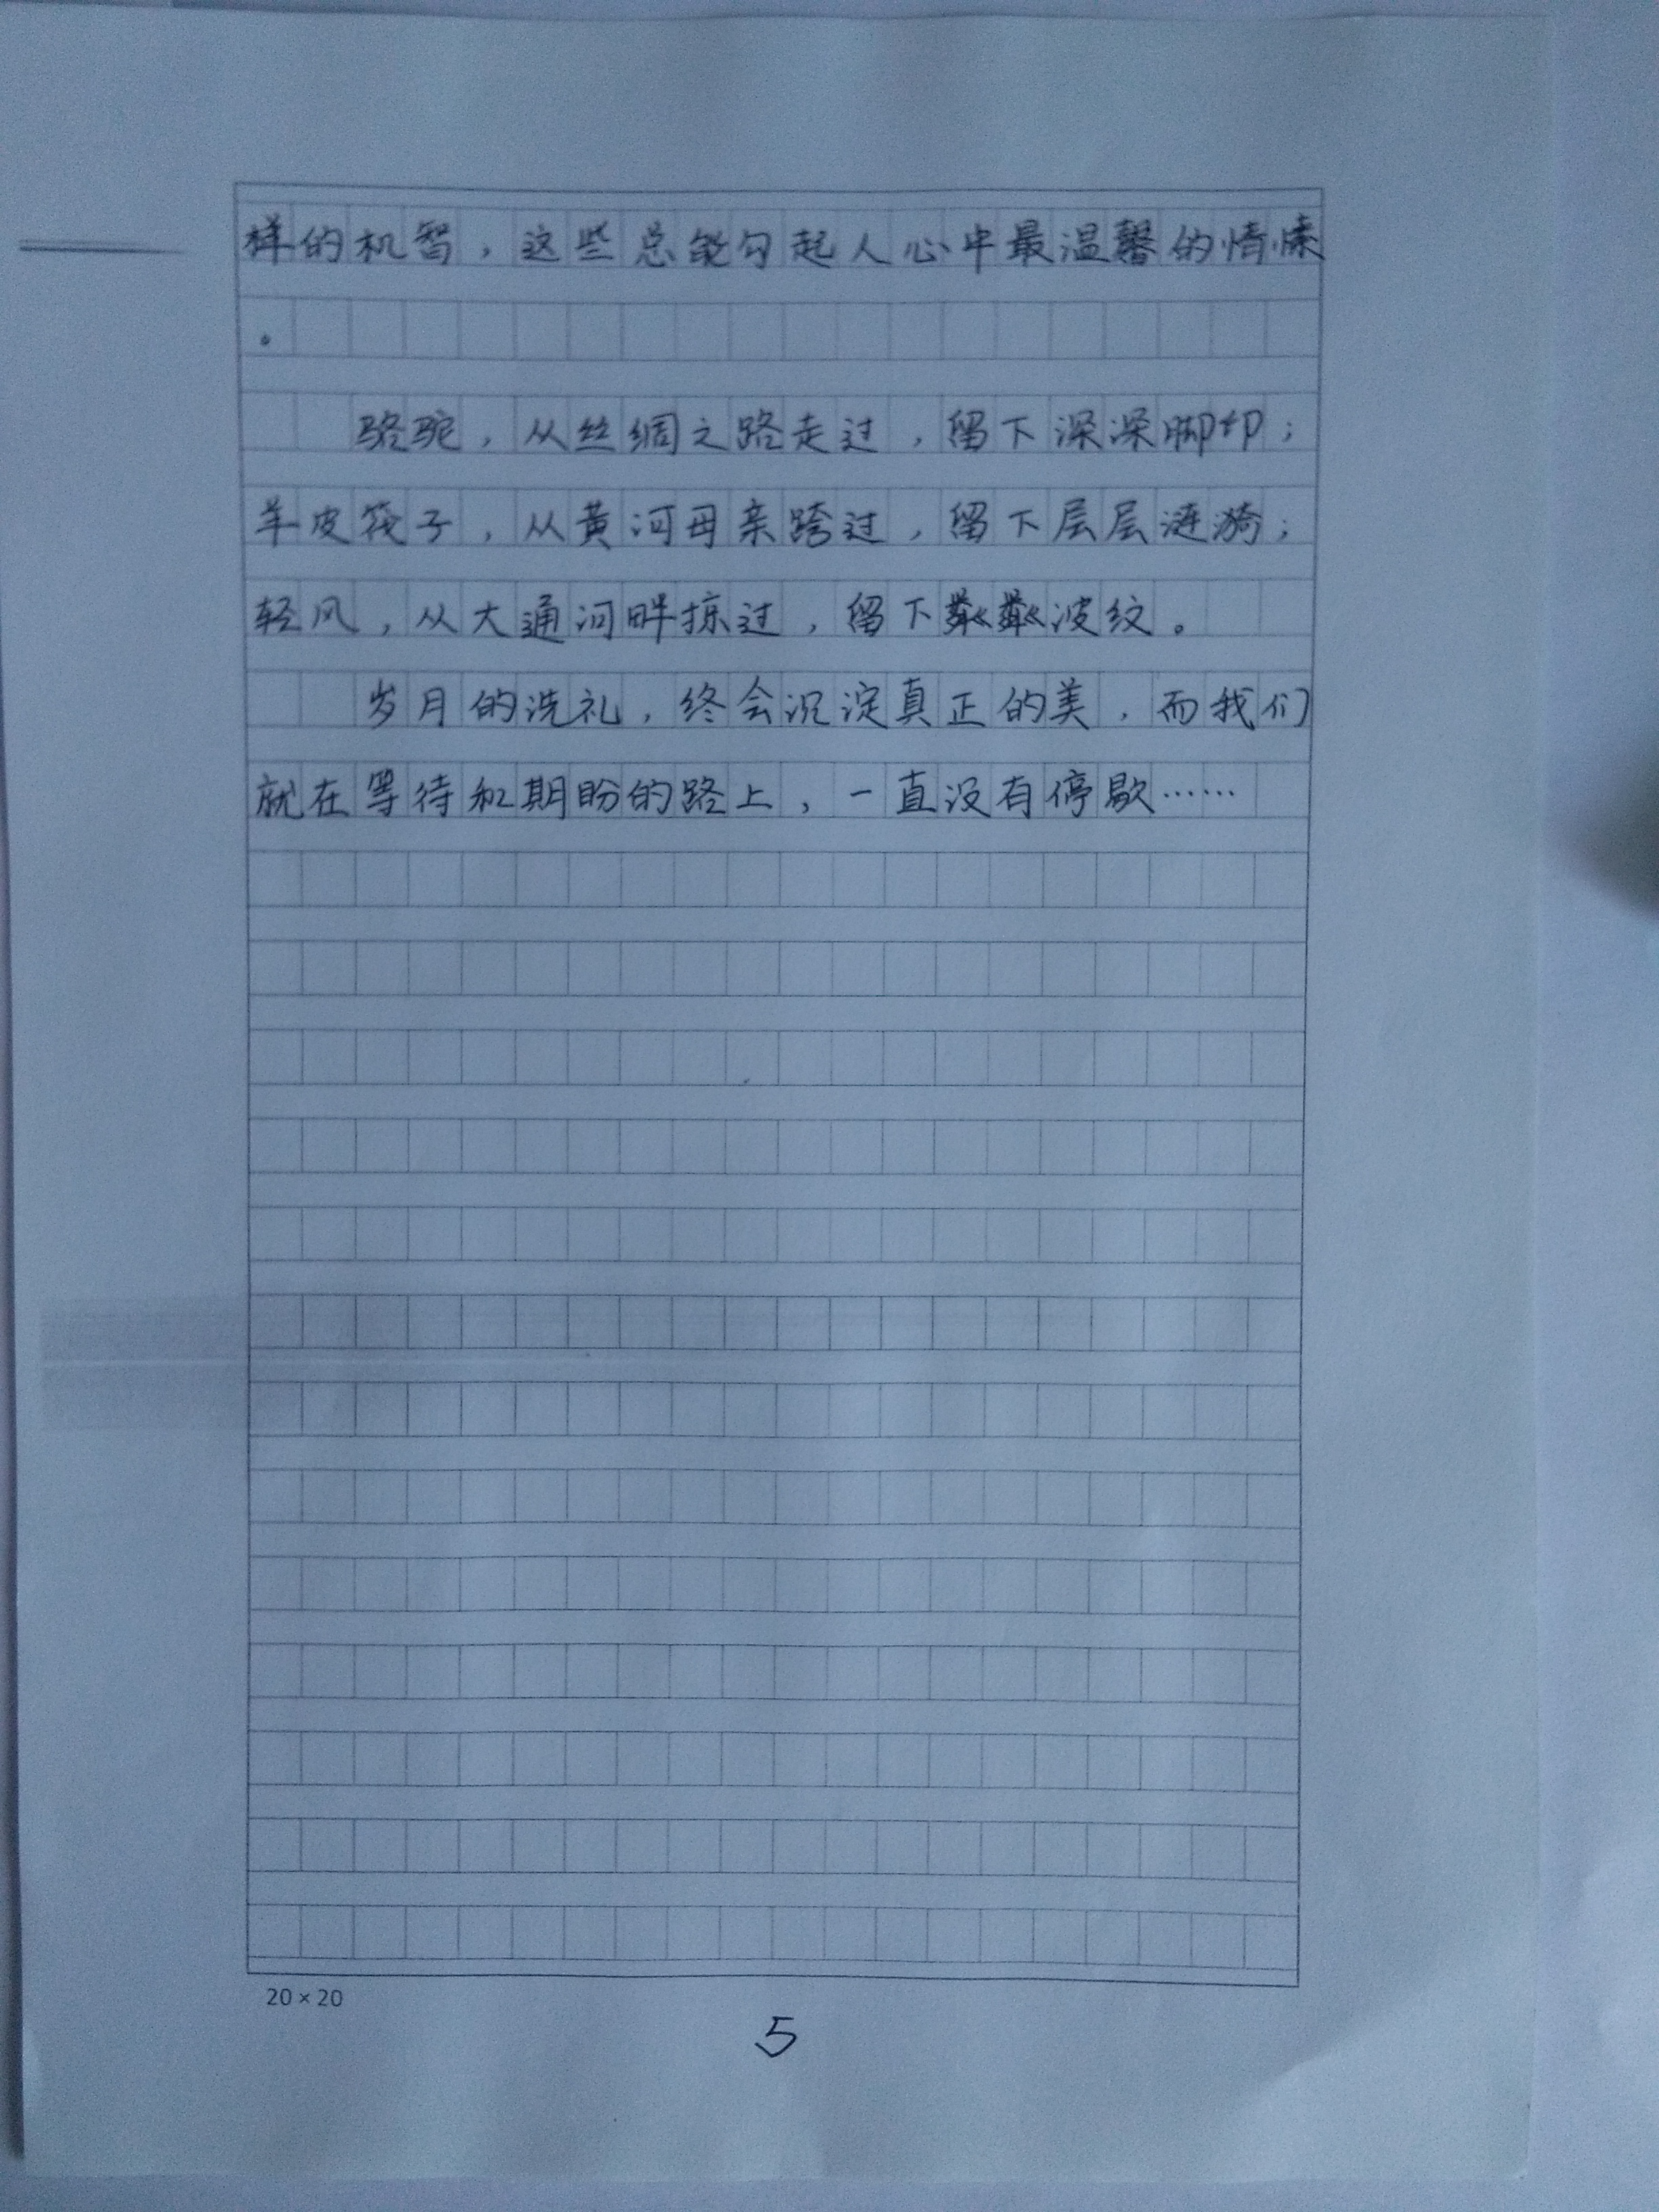 样的机智，这些总能勾起人心中最温馨的情愫
。
骆驼，从丝绸之路走过，留下深深脚印；
羊皮筏子，从黄河母亲跨过，留下层层涟漪；
轻风，从大通河畔掠过，留下粼粼波纹。
岁月的洗礼，终会沉淀真正的美，而我们
就在等待和期盼的路上，一直没有停歇……
20×20
5